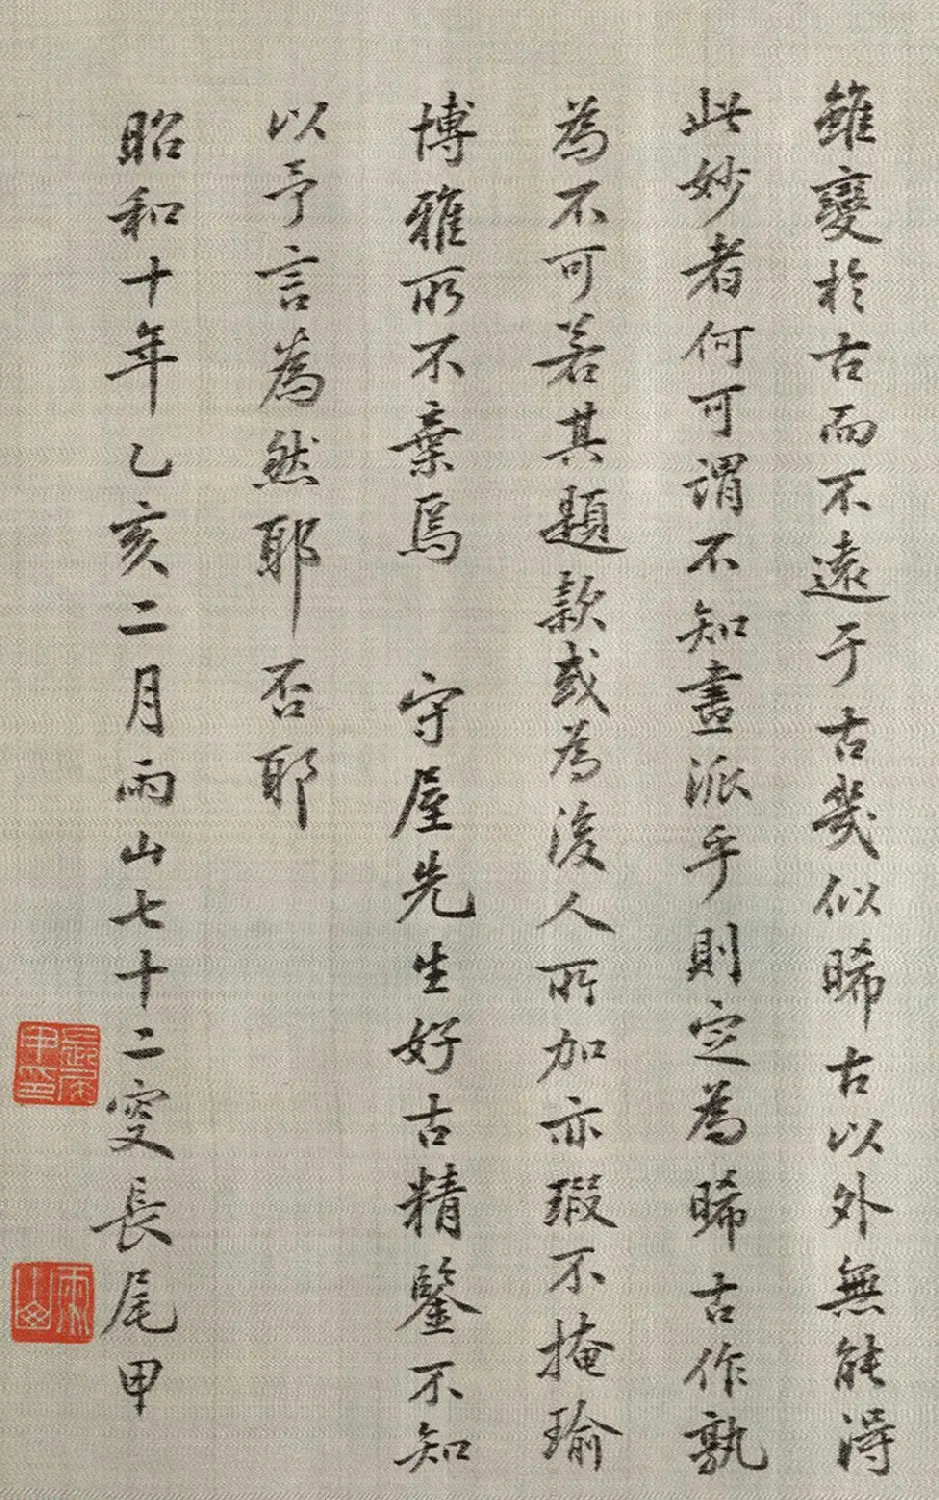 雖變於古而不遠于古幾似晞古以外無能得
此妙者何可謂不知畫派乎則定為晞古作孰
為不可若其題款或為後人所加亦瑕不掩瑜
博雅所不棄焉 守屋先生好古精鑒不知
以予言為然耶否耶
昭和十年乙亥二月雨山七十二叟長尾甲
長尾甲印
雨山